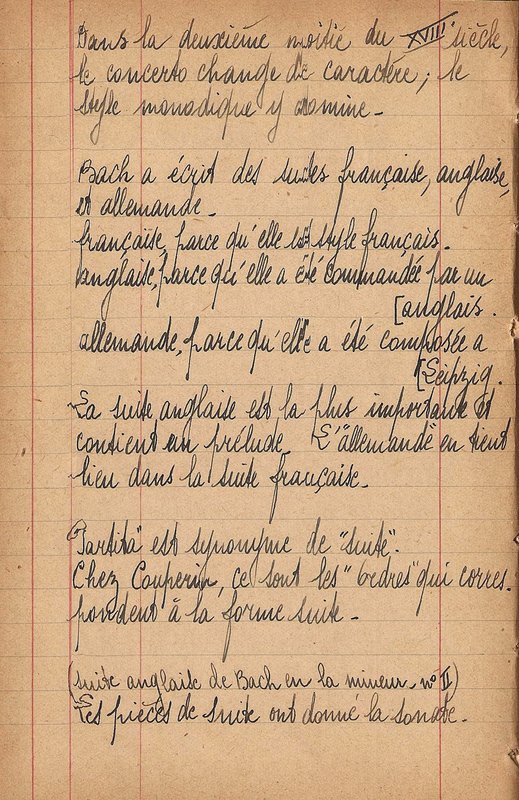 Dans la deuxième moitié du XVIII siècle,
le concerto change de caractère ; le
style monodique y domine -
Bach a écrit des suites française, anglaise,
et allemande -
française, parce qu'elle est style français -
anglaise, parce qu'elle a été commandée par un
[anglais.
allemande, parce qu'elle a été composée a
[Leipzig.
La suite anglaise est la plus importante et
contient un prélude - L'"allemande" en tient
lieu dans la suite française -
"Partita" est synonyme de "suite".
Chez Couperin, ce sont les "ordres" qui corres-
pondent à la forme suite -
(suite anglaise de Bach en la mineur - n° II)
Les pièces de suite ont donné la sonate -